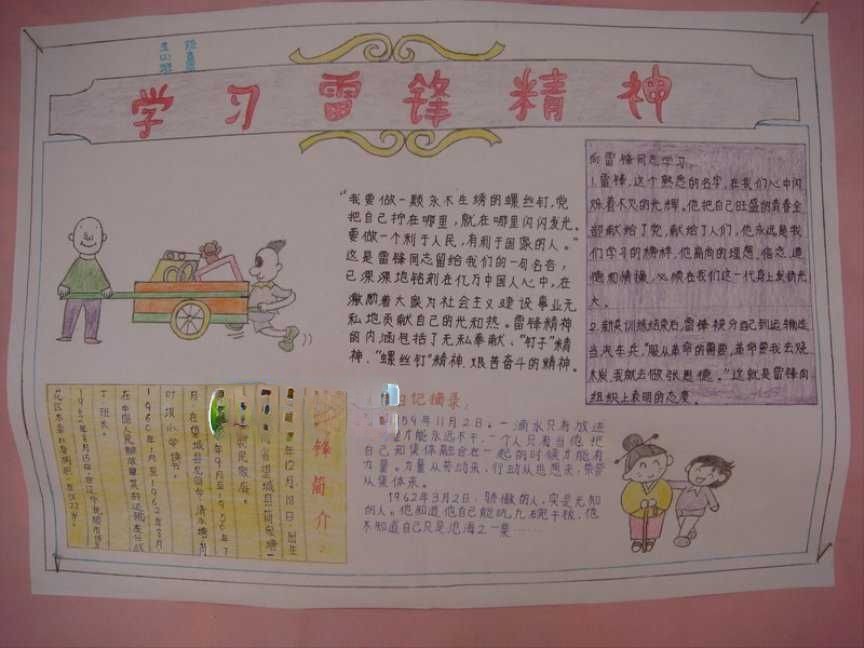 学习雷锋精神
"我要做一颗永不生锈的螺丝钉,党
把自己拧在哪里,就在哪里闪闪发光。
要做一个利于人民,有利于国家的人。"
这是雷锋同志留给我们的一句名言,
已深深地铭刻在亿万中国人心中,在
激励着大家为社会主义建设事业无
私地贡献自己的光和热。雷锋精神
的内涵包括了无私奉献、"钉子"精
神、"螺丝钉"精神、艰苦奋斗的精神。
向雷锋同志学习。
1.雷锋,这个熟悉的名字,在我们心中闪
烁着不灭的光辉。他把自己旺盛的青春全
部献给了党,献给了人们,他永远是我
们学习的榜样,他高尚的理想、信念、道
德和情操,必将在我们这一代身上发扬光
大。
2.新兵训练结束后,雷锋被分配到运输连
当汽车兵,"服从革命的需要,革命需我去烧
木炭,我就去做张思德。"这就是雷锋向
组织上表明的态度。
锋简介:
年12月18日,出生
省望城县简家塘一
农民家庭。
年9月至1956年7
月,在望城县
小学读书。
1960年1月至1962年8月
在中国人民解放军某部运输连任战
1962年8月15日
记摘录:
59年11月2日。一滴水只有放进
才能永远不干,一个人只有当他把
自己和集体融合在一起的时候才能有
力量。力量从劳动来,行动从思想来,荣誉
从集体来。
1962年3月2日,骄傲的人,其实是无知
的人。他不知道他自己能吃几碗干饭,他
不知道自己只是沧海之一粟……